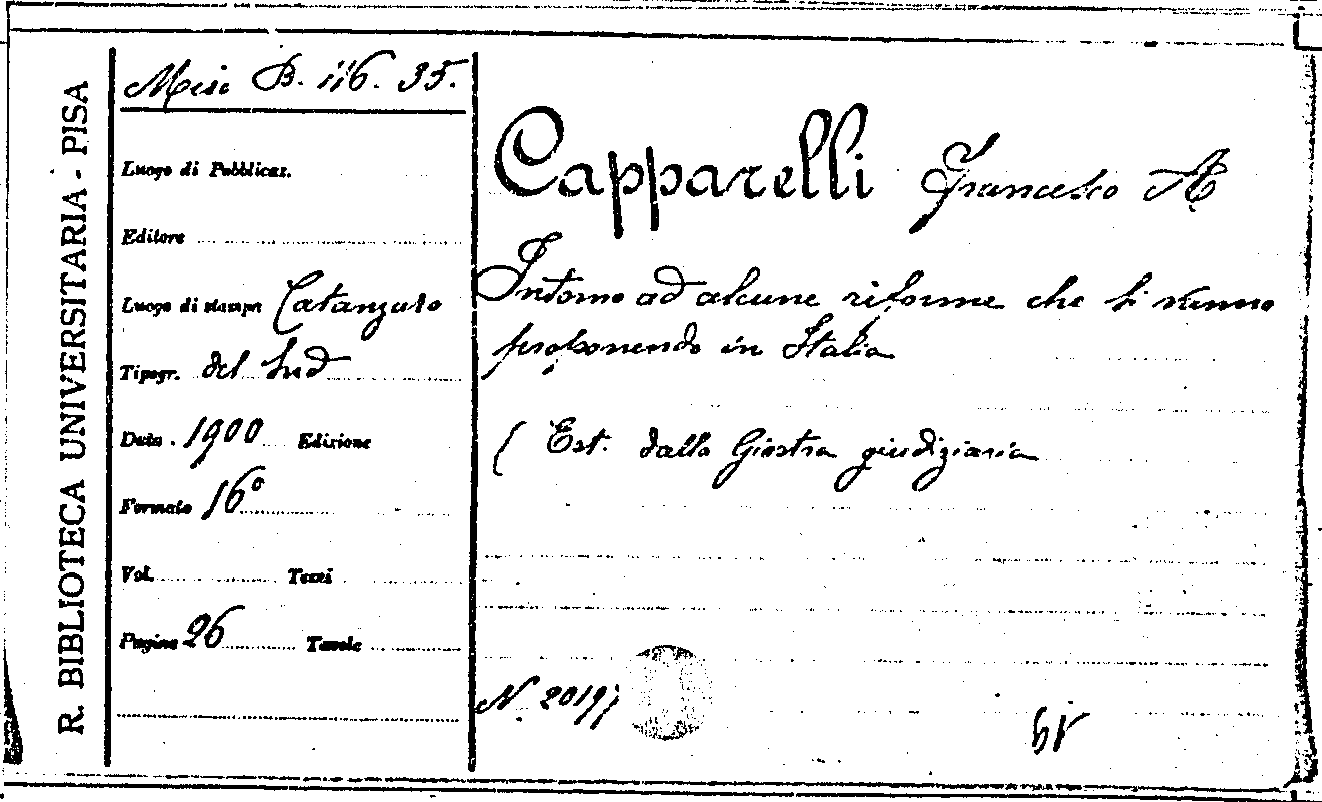 R. BIBLIOTECA UNIVERSITARIA - PISA
Misc B. 116. 35.
Luogo di Pubblicaz.
Editore
Luogo di stampa Catanzaro
Tipogr. del Sud
Data 1900 Edizione
Formato 16°
Vol. Tomi
Pagine 26 Tavole
Capparelli Francesco A
Intorno ad alcune riforme che si vanno
proponendo in Italia
( Est. dalla Giostra giudiziaria
N. 2019